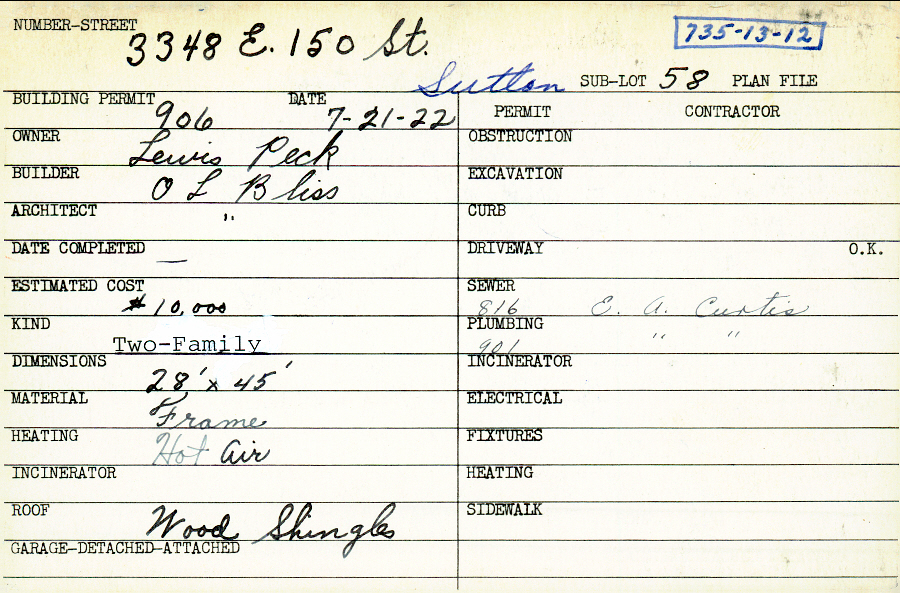 NUMBER-STREET 3348 E. 150 St. 735-13-12
Sutton SUB-LOT 58 PLAN FILE
BUILDING PERMIT 906 DATE 7-21-22 PERMIT CONTRACTOR
OWNER Lewis Peck OBSTRUCTION
BUILDER O L Bliss EXCAVATION
ARCHITECT " CURB
DATE COMPLETED — DRIVEWAY O.K.
ESTIMATED COST $10,000 SEWER 816 E. A. Curtis
KIND Two-Family PLUMBING 901 " "
DIMENSIONS 28' x 45' INCINERATOR
MATERIAL Frame ELECTRICAL
HEATING Hot Air FIXTURES
INCINERATOR HEATING
ROOF Wood Shingles SIDEWALK
GARAGE-DETACHED-ATTACHED